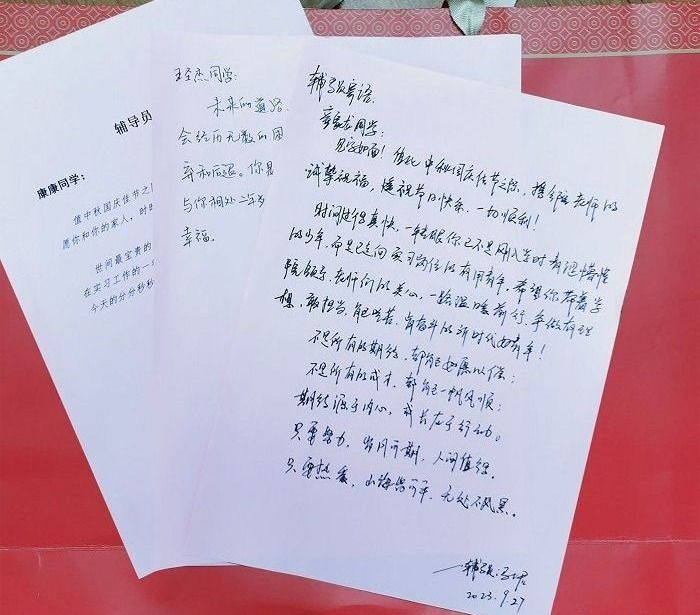 辅导员
康康同学：
值中秋国庆佳节之
愿你和你的家人，时时
世间最宝贵的
在实习工作的一
今天的分分秒秒
同学：
未来的道路
会经历无数的困
幸福。
辅导员寄语
同学：
见字如面！值此中秋国庆佳节之际，携全院老师的
诚挚祝福，遥祝节日快乐，一切顺利！
时间过得真快，一转眼你已不是刚入学时有迷懵懂
的少年，而是已走向实习岗位的有用青年，希望你带着学
院领导、老师们的关心，一路温暖前行，争做有理
想、敢担当、能吃苦、肯奋斗的新时代好青年！
不是所有的期待，都能如愿以偿；
不是所有的成长，都能一帆风顺；
期待源于内心，成长在于行动。
只要努力，岁月可期，人间值得。
只要热爱，山海皆可平，无处不风景。
—辅导员：
2023.9.27